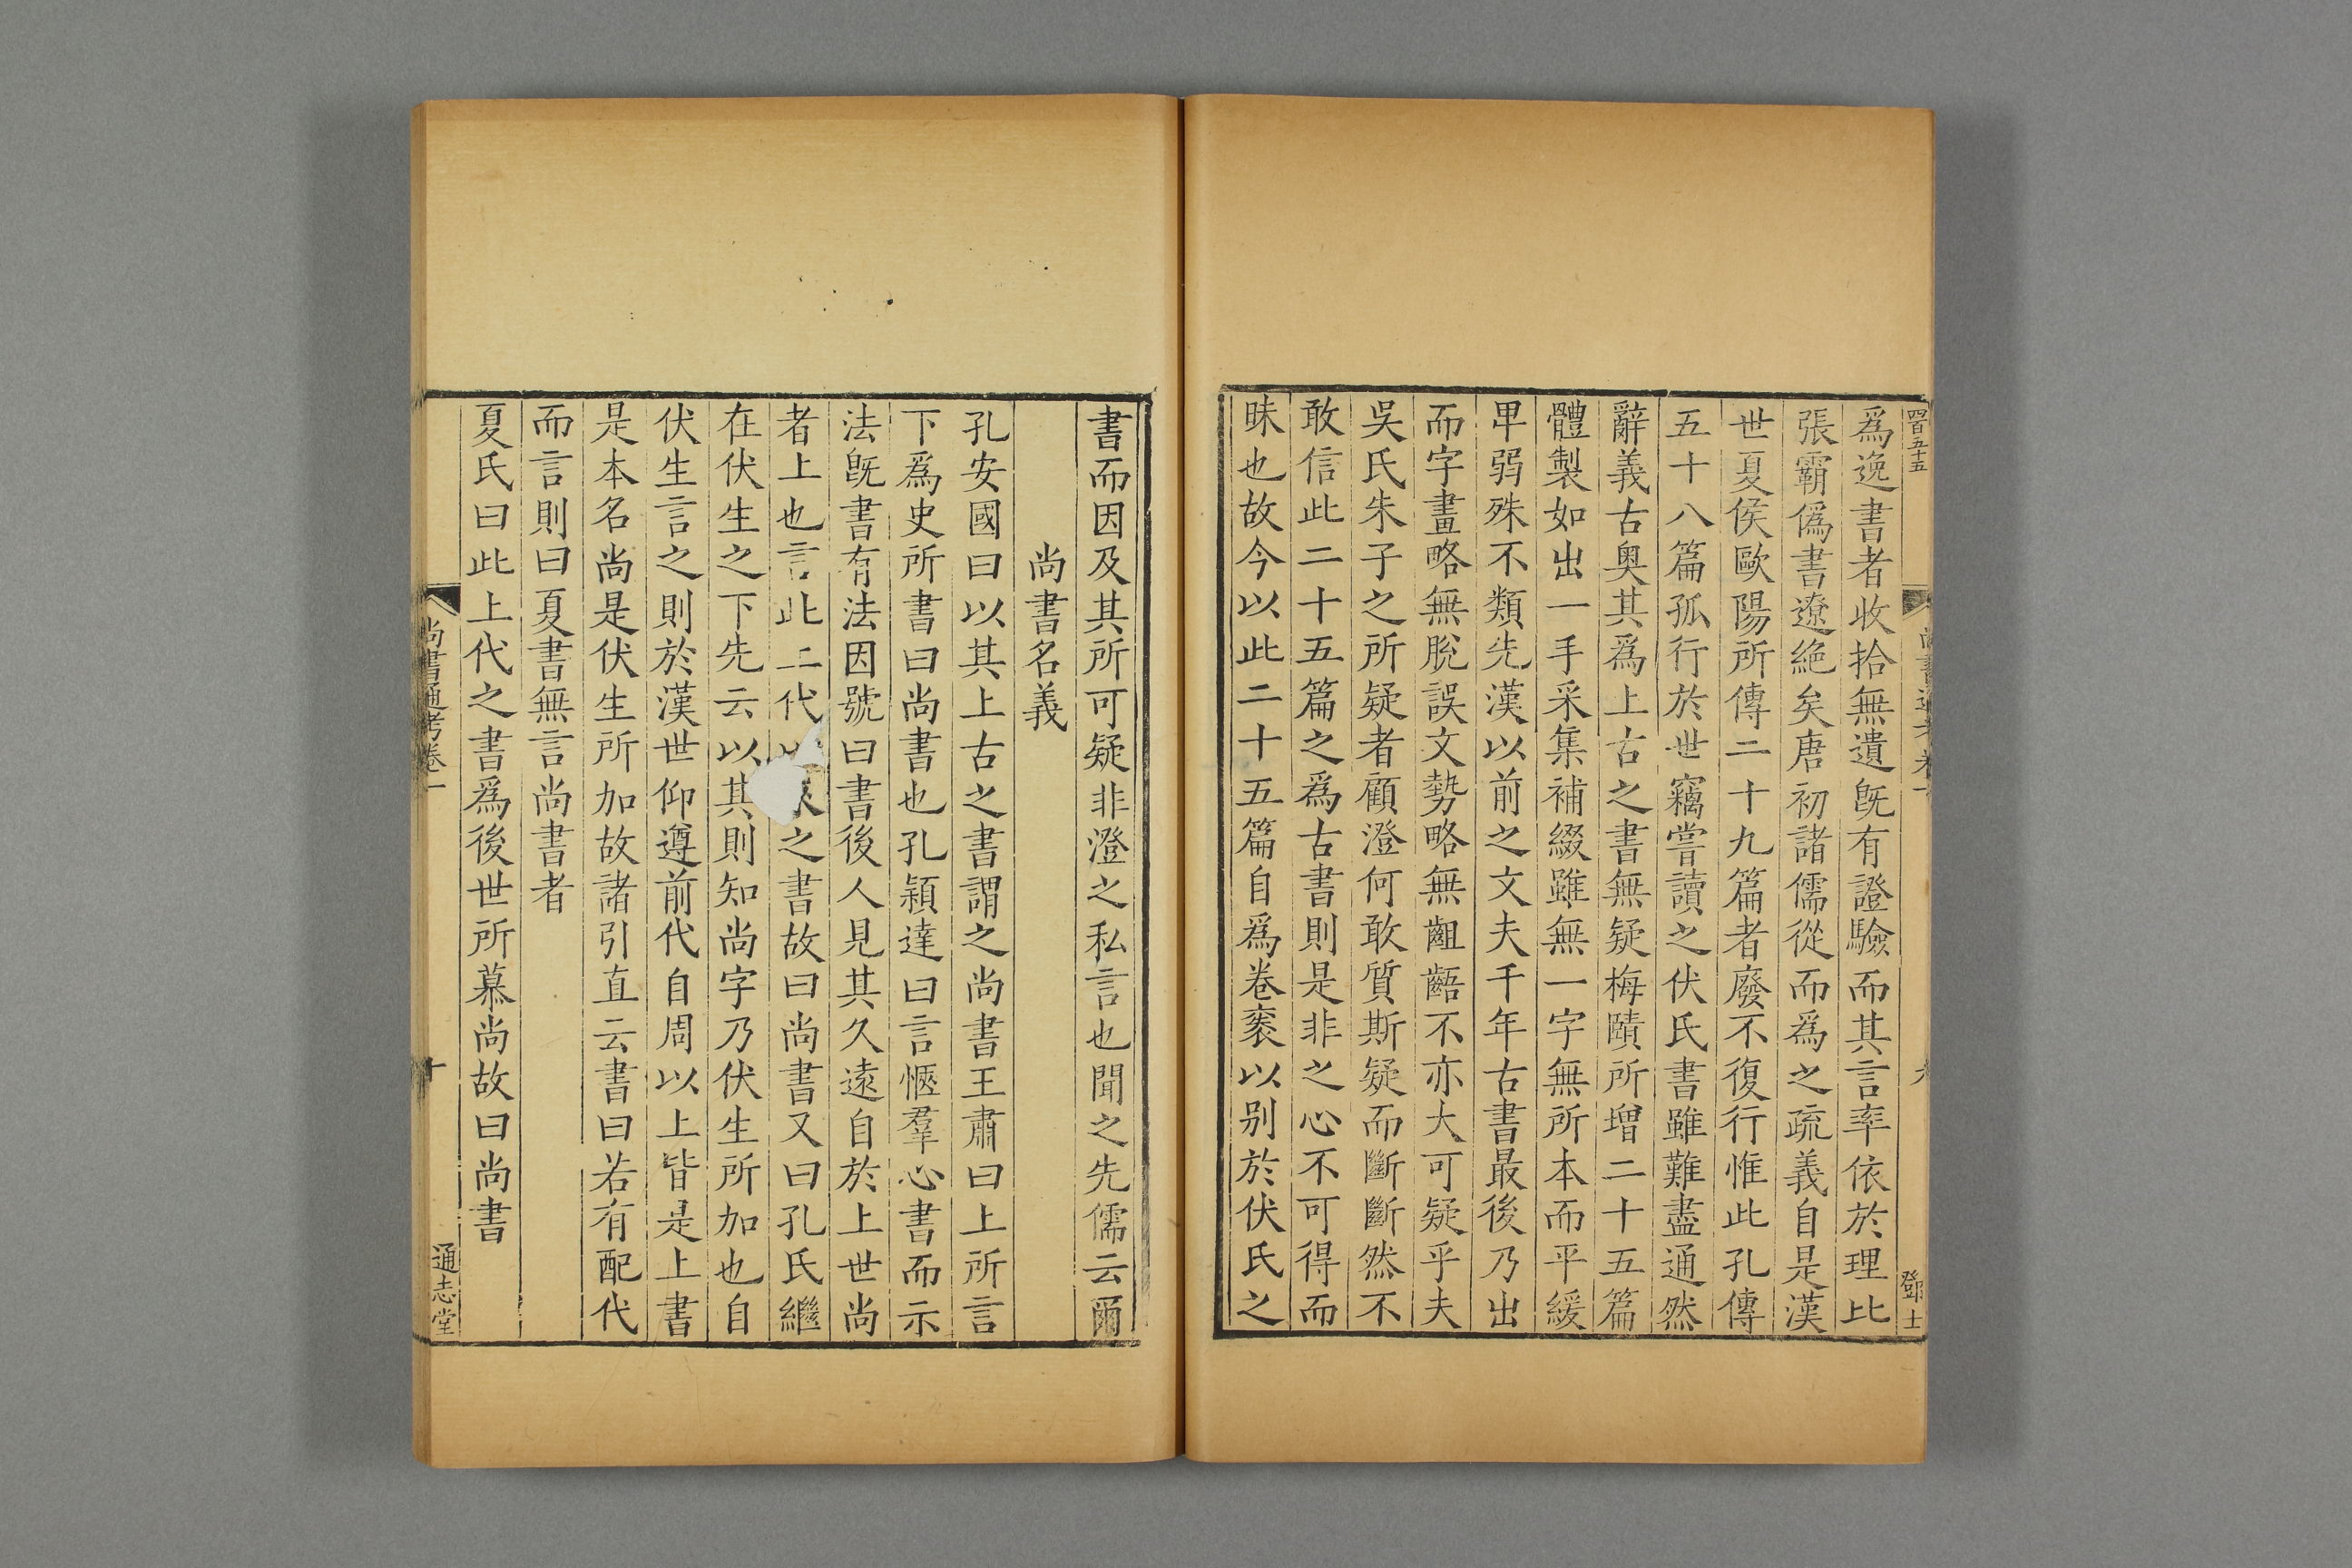 四百五十五
尚書通考卷一
鄧士
爲逸書者收拾無遺旣有證驗而其言率依於理比
張霸僞書遼絶矣唐初諸儒從而爲之疏義自是漢
世夏侯歐陽所傳二十九篇者廢不復行惟此孔傳
五十八篇孤行於世竊嘗讀之伏氏書雖難盡通然
辭義古奧其爲上古之書無疑梅賾所增二十五篇
體製如出一手采集補綴雖無一字無所本而平緩
卑弱殊不類先漢以前之文夫千年古書最後乃出
而字畫略無脫誤文勢略無齟齬不亦大可疑乎夫
吳氏朱子之所疑者顧澄何敢質斯疑而斷斷然不
敢信此二十五篇之爲古書則是非之心不可得而
昧也故今以此二十五篇自爲卷袠以别於伏氏之
書而因及其所可疑非澄之私言也聞之先儒云爾
尚書名義
孔安國曰以其上古之書謂之尚書王肅曰上所言
下爲史所書曰尚書也孔穎達曰言愜羣心書而示
法旣書有法因號曰書後人見其久遠自於上世尚
者上也言此上代之書故曰尚書又曰孔氏繼
在伏生之下先云以其則知尚字乃伏生所加也自
伏生言之則於漢世仰遵前代自周以上皆是上書
是本名尚是伏生所加故諸引直云書曰若有配代
而言則曰夏書無言尚書者
夏氏曰此上代之書爲後世所慕尚故曰尚書
尚書通考卷一
十
通志堂